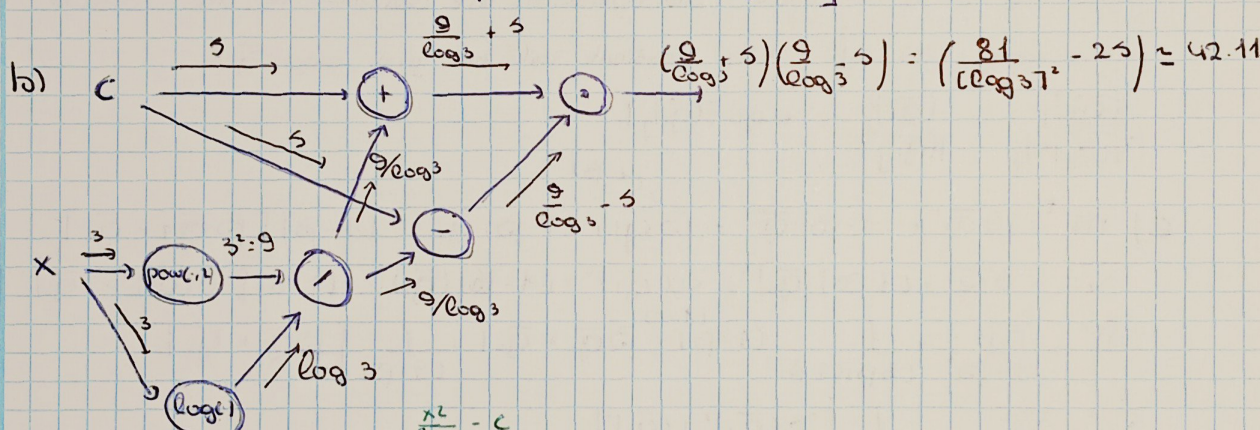 b) C 5 + 9/log3 + 5 · (9/log3 + 5)(9/log3 - 5) = (81/[log3]² - 25) ≃ 42.11
5
9/log3
9/log3 - 5
-
x 3 pow(·,2) 3²=9 / 9/log3
3
log 3
log(·)
x² - c